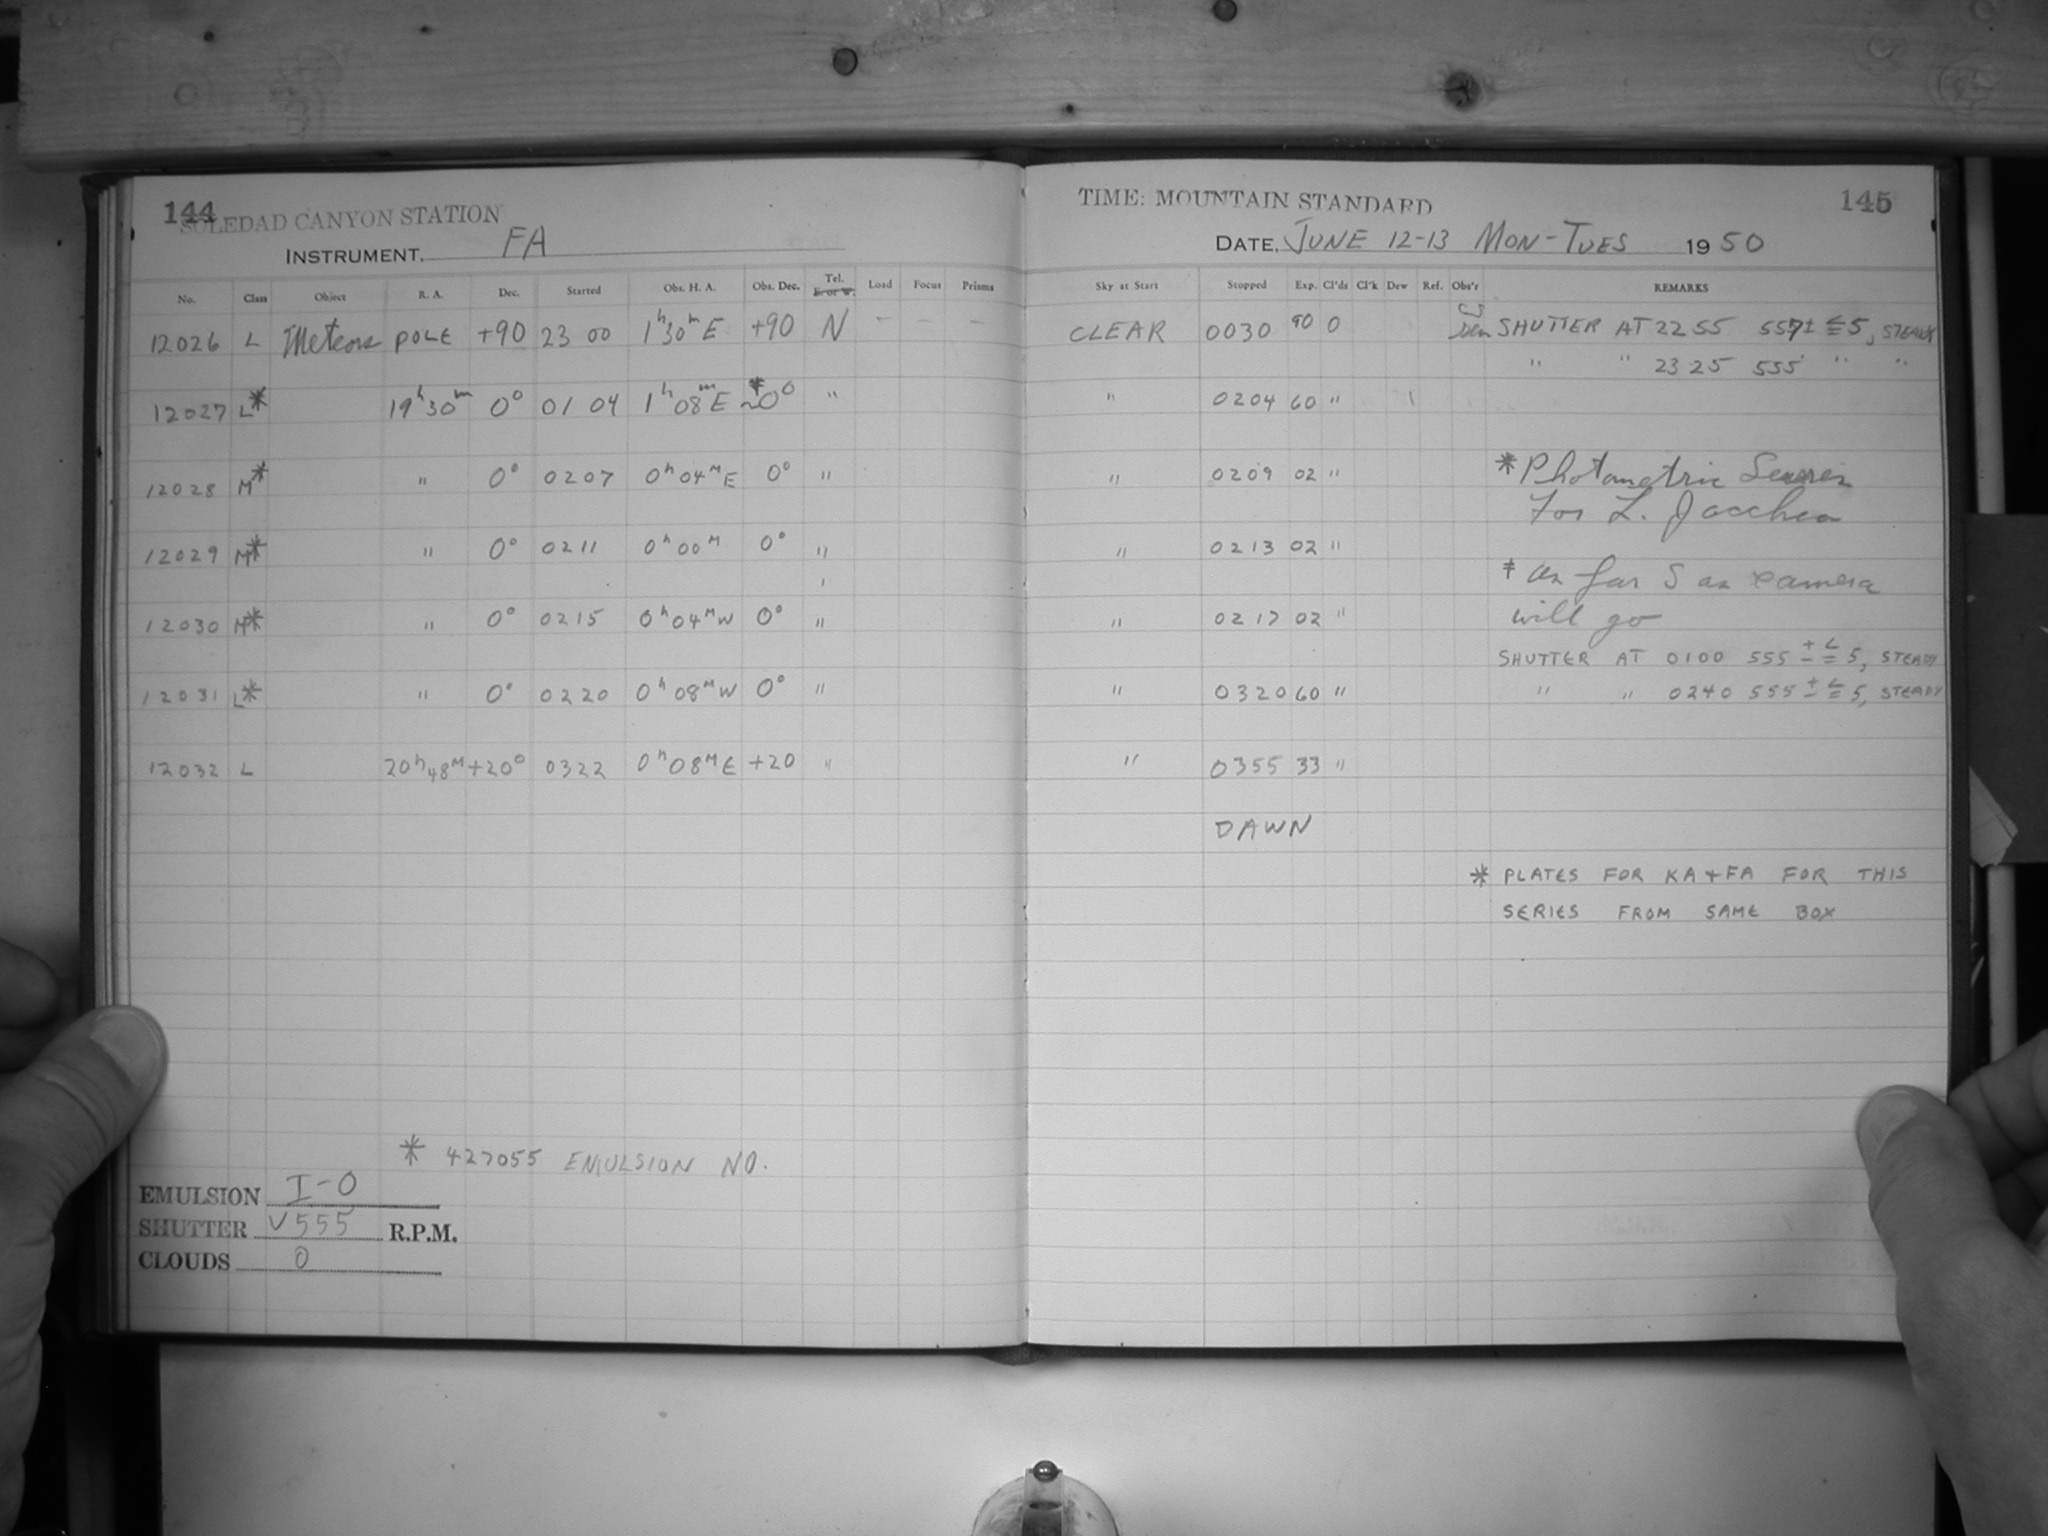 144
SOLEDAD CANYON STATION
INSTRUMENT. FA
No. Class Object R. A. Dec. Started Obs. H. A. Obs. Dec. Tel. E. or W. Load Focus Prisms
12026 L Meteors POLE +90 23 00 1ʰ30ᵐE +90 N - - -
12027 L* 19ʰ30ᵐ 0° 01 04 1ʰ08ᵐE ~0° "
12028 M* " 0° 0207 0ʰ04ᴹE 0° "
12029 M* " 0° 0211 0ʰ00ᴹ 0° "
12030 M* " 0° 0215 0ʰ04ᴹW 0° "
12031 L* " 0° 0220 0ʰ08ᴹW 0° "
12032 L 20ʰ48ᴹ +20° 0322 0ʰ08ᴹE +20 "
* 427055 EMULSION NO.
EMULSION I-O
SHUTTER √555 R.P.M.
CLOUDS 0
TIME: MOUNTAIN STANDARD
145
DATE, JUNE 12-13 MON-TUES 1950
Sky at Start Stopped Exp. Cl'ds Cl'k Dew Ref. Obs'r REMARKS
CLEAR 0030 90 0 SHUTTER AT 2255 557± ≤5, STEADY
" " 2325 555 " "
" 0204 60 "
" 0209 02 " * Photometric Series
For L. Jacchia
" 0213 02 "
‡ as far S as camera
will go
" 0217 02 "
SHUTTER AT 0100 555 ± ≤ 5, STEADY
" 0320 60 " " " 0240 555 ± ≤ 5, STEADY
" 0355 33 "
DAWN
* PLATES FOR KA + FA FOR THIS
SERIES FROM SAME BOX